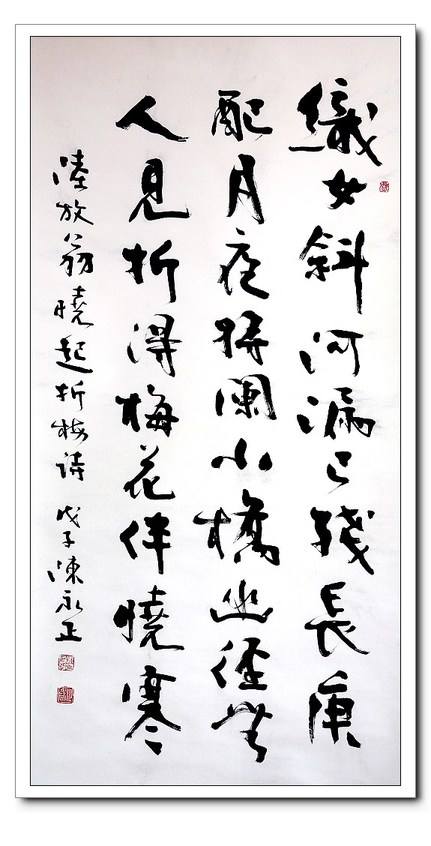 織女斜河漏已殘長庚
配月夜將闌小橋幽徑無
人見折得梅花伴曉寒
陸放翁曉起折梅詩 戊子陳永正